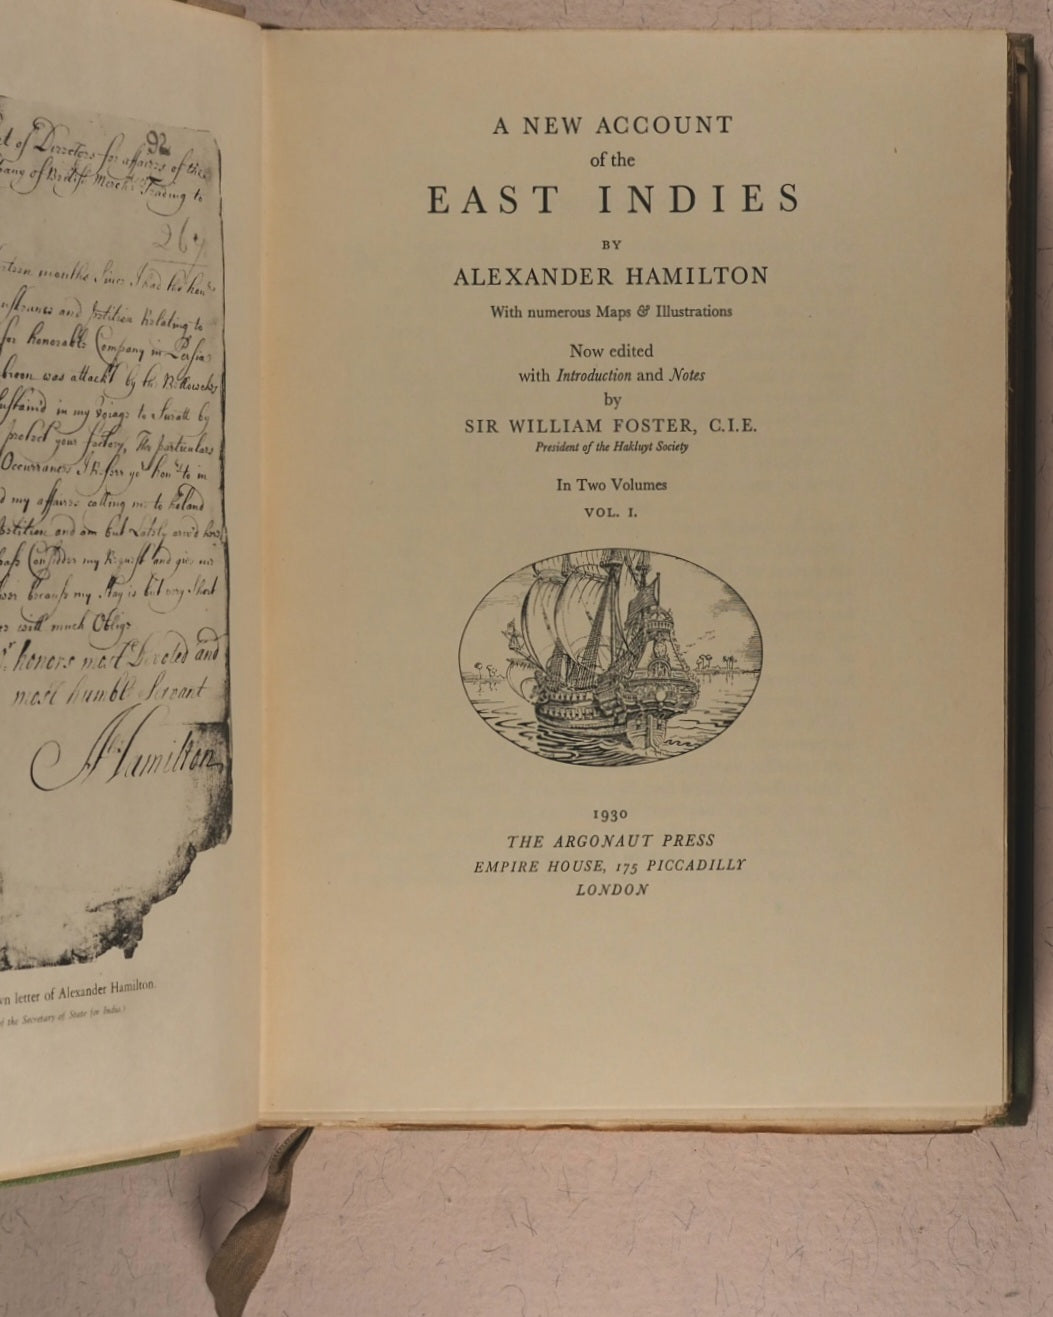 92
of Directors for affairs of the
any of British Merchts Trading to
267
months Since I had the hon
and petition Relating to
for honorable Company in Persia
was attackt by the
in my voiage to Suratt by
protect your factory, The particulars
I Referr yor honrs to in
my affairs calling me to holand
petition and am but Lately
Consider my Request and give me
because my stay is but very short
will much Oblige
honors most Devoted and
most humble Servant
Hamilton
letter of Alexander Hamilton.
of the Secretary of State for India.)
A NEW ACCOUNT
of the
EAST INDIES
BY
ALEXANDER HAMILTON
With numerous Maps & Illustrations
Now edited
with Introduction and Notes
by
SIR WILLIAM FOSTER, C.I.E.
President of the Hakluyt Society
In Two Volumes
VOL. I.
1930
THE ARGONAUT PRESS
EMPIRE HOUSE, 175 PICCADILLY
LONDON